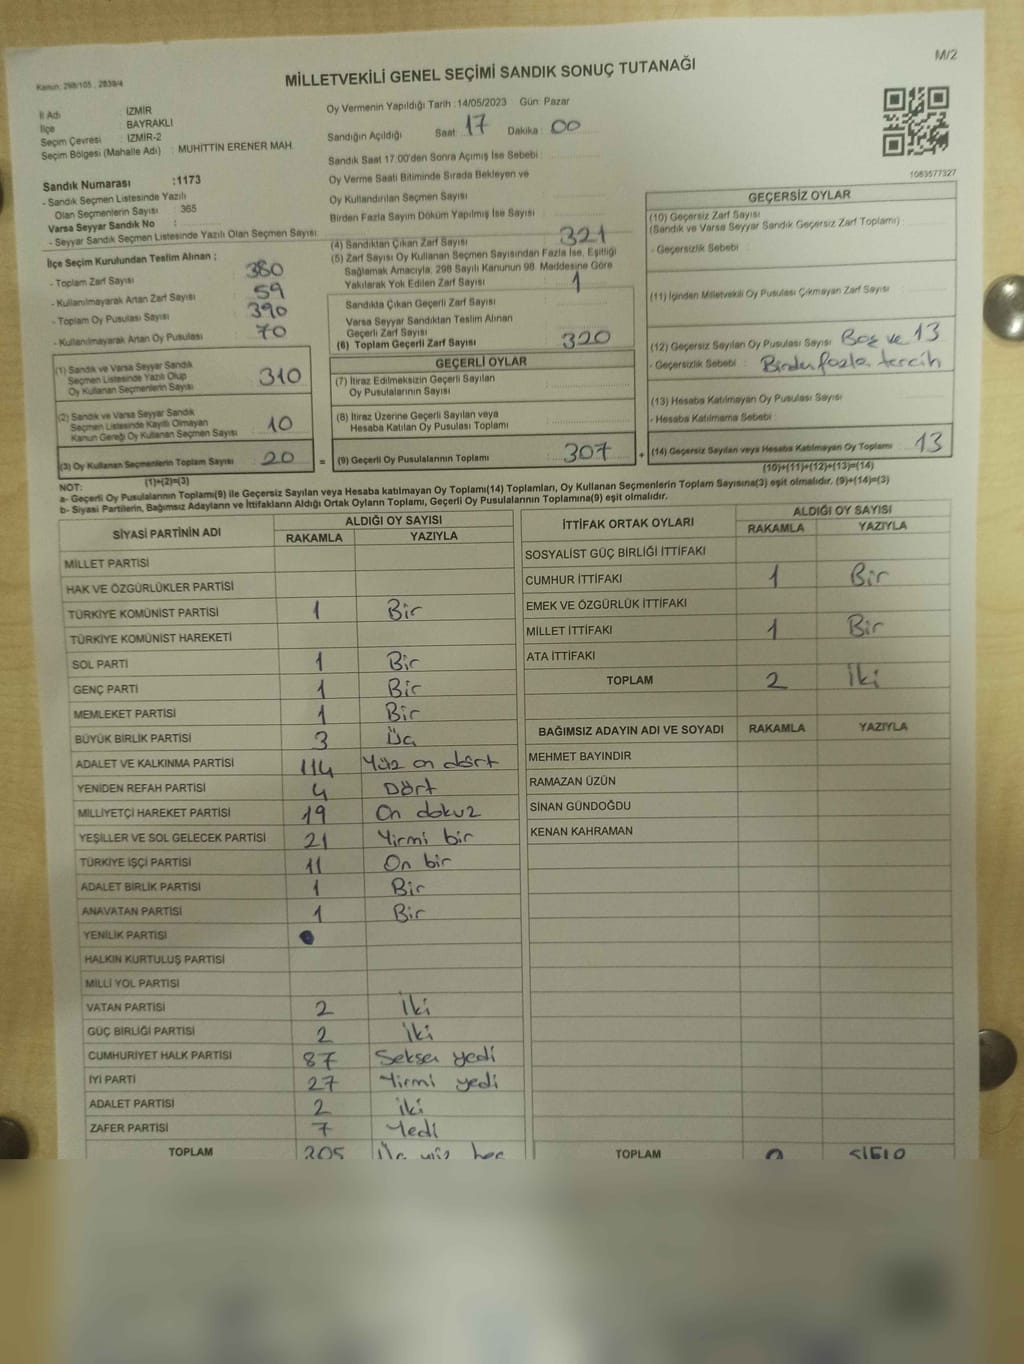 M/2
Kanun: 298/105 , 2839/4
MİLLETVEKİLİ GENEL SEÇİMİ SANDIK SONUÇ TUTANAĞI
İl Adı : İZMİR
İlçe : BAYRAKLI
Seçim Çevresi : İZMİR-2
Seçim Bölgesi (Mahalle Adı) : MUHİTTİN ERENER MAH.
Oy Vermenin Yapıldığı Tarih :14/05/2023 Gün: Pazar
Sandığın Açıldığı Saat: 17 Dakika : 00
Sandık Saat 17:00'den Sonra Açımış İse Sebebi :
Oy Verme Saati Bitiminde Sırada Bekleyen ve
Oy Kullandırılan Seçmen Sayısı
Birden Fazla Sayım Döküm Yapılmış İse Sayısı
1083577327
Sandık Numarası :1173
- Sandık Seçmen Listesinde Yazılı
Olan Seçmenlerin Sayısı : 365
Varsa Seyyar Sandık No :
- Seyyar Sandık Seçmen Listesinde Yazılı Olan Seçmen Sayısı:
İlçe Seçim Kurulundan Teslim Alınan ;
- Toplam Zarf Sayısı : 380
- Kullanılmayarak Artan Zarf Sayısı : 59
- Toplam Oy Pusulası Sayısı : 390
- Kullanılmayarak Artan Oy Pusulası : 70
(1) Sandık ve Varsa Seyyar Sandık
Seçmen Listesinde Yazılı Olup
Oy Kullanan Seçmenlerin Sayısı : 310
(2) Sandık ve Varsa Seyyar Sandık
Seçmen Listesinde Kayıtlı Olmayan
Kanun Gereği Oy Kullanan Seçmen Sayısı : 10
(3) Oy Kullanan Seçmenlerin Toplam Sayısı : 20
(1)+(2)=(3)
(4) Sandıktan Çıkan Zarf Sayısı 321
(5) Zarf Sayısı Oy Kullanan Seçmen Sayısından Fazla İse, Eşitliği
Sağlamak Amacıyla, 298 Sayılı Kanunun 98. Maddesine Göre
Yakılarak Yok Edilen Zarf Sayısı : 1
Sandıkta Çıkan Geçerli Zarf Sayısı
Varsa Seyyar Sandıktan Teslim Alınan
Geçerli Zarf Sayısı
(6) Toplam Geçerli Zarf Sayısı : 320
GEÇERLİ OYLAR
(7) İtiraz Edilmeksizin Geçerli Sayılan
Oy Pusulalarının Sayısı
(8) İtiraz Üzerine Geçerli Sayılan veya
Hesaba Katılan Oy Pusulası Toplamı
= (9) Geçerli Oy Pusulalarının Toplamı : 307 +
GEÇERSİZ OYLAR
(10) Geçersiz Zarf Sayısı
(Sandık ve Varsa Seyyar Sandık Geçersiz Zarf Toplamı)
- Geçersizlik Sebebi :
(11) İçinden Milletvekili Oy Pusulası Çıkmayan Zarf Sayısı
(12) Geçersiz Sayılan Oy Pusulası Sayısı : Boş ve 13
- Geçersizlik Sebebi : Birden fazla tercih
(13) Hesaba Katılmayan Oy Pusulası Sayısı
- Hesaba Katılmama Sebebi :
(14) Geçersiz Sayılan veya Hesaba Katılmayan Oy Toplamı : 13
(10)+(11)+(12)+(13)=(14)
NOT:
a- Geçerli Oy Pusulalarının Toplamı(9) ile Geçersiz Sayılan veya Hesaba katılmayan Oy Toplamı(14) Toplamları, Oy Kullanan Seçmenlerin Toplam Sayısına(3) eşit olmalıdır. (9)+(14)=(3)
b- Siyasi Partilerin, Bağımsız Adayların ve İttifakların Aldığı Ortak Oyların Toplamı, Geçerli Oy Pusulalarının Toplamına(9) eşit olmalıdır.
SİYASİ PARTİNİN ADI
ALDIĞI OY SAYISI
RAKAMLA YAZIYLA
MİLLET PARTİSİ
HAK VE ÖZGÜRLÜKLER PARTİSİ
TÜRKİYE KOMÜNİST PARTİSİ 1 Bir
TÜRKİYE KOMÜNİST HAREKETİ
SOL PARTİ 1 Bir
GENÇ PARTİ 1 Bir
MEMLEKET PARTİSİ 1 Bir
BÜYÜK BİRLİK PARTİSİ 3 Üç
ADALET VE KALKINMA PARTİSİ 114 Yüz on dört
YENİDEN REFAH PARTİSİ 4 Dört
MİLLİYETÇİ HAREKET PARTİSİ 19 On dokuz
YEŞİLLER VE SOL GELECEK PARTİSİ 21 Yirmi bir
TÜRKİYE İŞÇİ PARTİSİ 11 On bir
ADALET BİRLİK PARTİSİ 1 Bir
ANAVATAN PARTİSİ 1 Bir
YENİLİK PARTİSİ
HALKIN KURTULUŞ PARTİSİ
MİLLİ YOL PARTİSİ
VATAN PARTİSİ 2 İki
GÜÇ BİRLİĞİ PARTİSİ 2 İki
CUMHURİYET HALK PARTİSİ 87 Seksen yedi
İYİ PARTİ 27 Yirmi yedi
ADALET PARTİSİ 2 İki
ZAFER PARTİSİ 7 Yedi
TOPLAM 305 Üç yüz beş
İTTİFAK ORTAK OYLARI
ALDIĞI OY SAYISI
RAKAMLA YAZIYLA
SOSYALİST GÜÇ BİRLİĞİ İTTİFAKI
CUMHUR İTTİFAKI 1 Bir
EMEK VE ÖZGÜRLÜK İTTİFAKI
MİLLET İTTİFAKI 1 Bir
ATA İTTİFAKI
TOPLAM 2 İki
BAĞIMSIZ ADAYIN ADI VE SOYADI RAKAMLA YAZIYLA
MEHMET BAYINDIR
RAMAZAN ÜZÜN
SİNAN GÜNDOĞDU
KENAN KAHRAMAN
TOPLAM 0 SIFIR